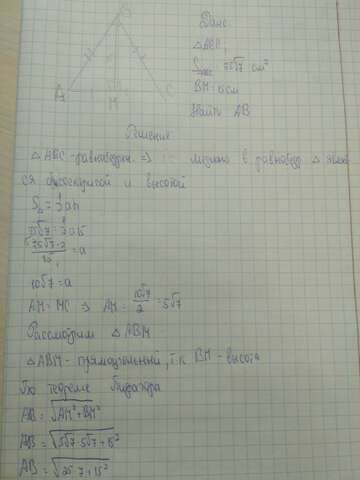 B
A
M
C
Дано
△ABC,
S△ABC 75√7 см²
BM: 15см
Найти AB
Решение
△ABC - равнобедрен => медиана в равнобедр △ явл
ся биссектрисой и высотой
S△ = 1/2 ah
75√7 = 1/2 a 15
75√7·2/15 = a
10√7 = a
AM = MC => AM = 10√7/2 = 5√7
Рассмотрим △ABM
△ABM - прямоугольный, т.к BM - высота
По теореме Пифагора
AB = √AM²+BM²
AB = √5√7·5√7+15²
AB = √25·7+15²